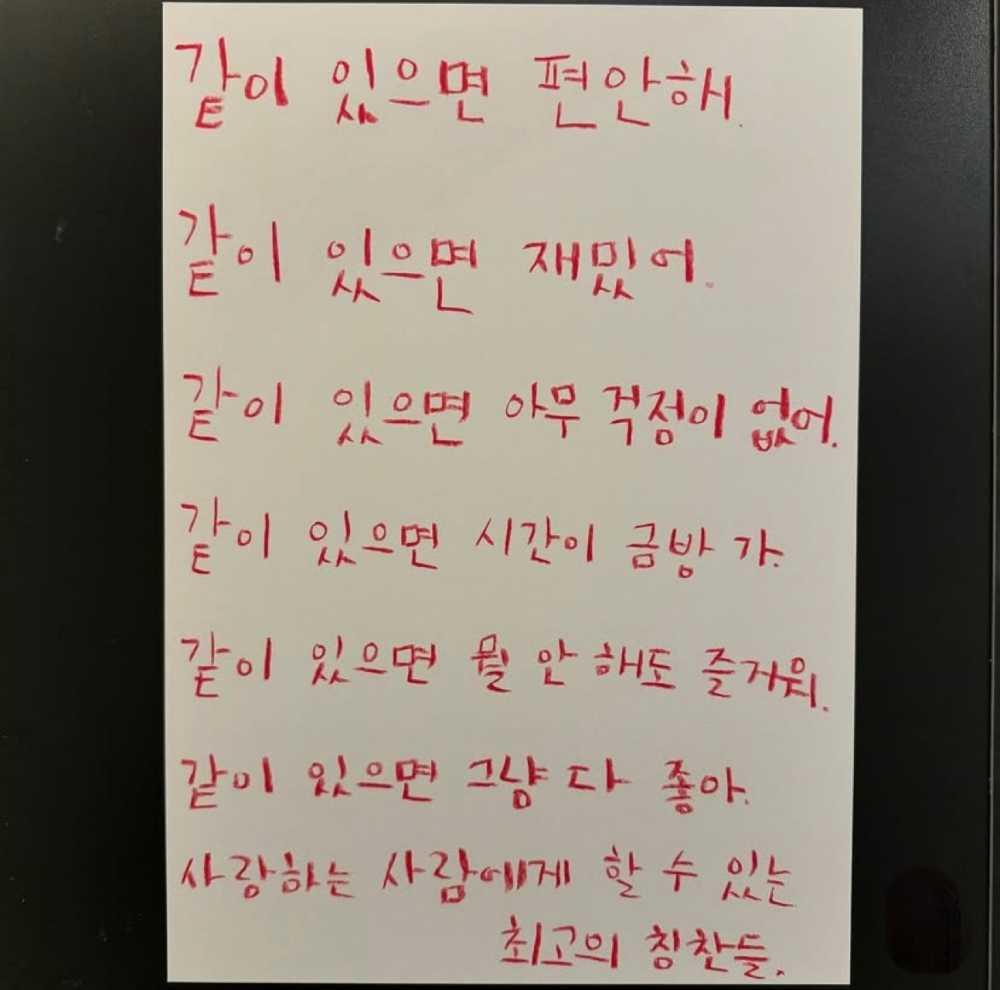 같이 있으면 편안해.
같이 있으면 재밌어.
같이 있으면 아무 걱정이 없어.
같이 있으면 시간이 금방 가.
같이 있으면 뭘 안 해도 즐거워.
같이 있으면 그냥 다 좋아.
사랑하는 사람에게 할 수 있는
최고의 칭찬들.